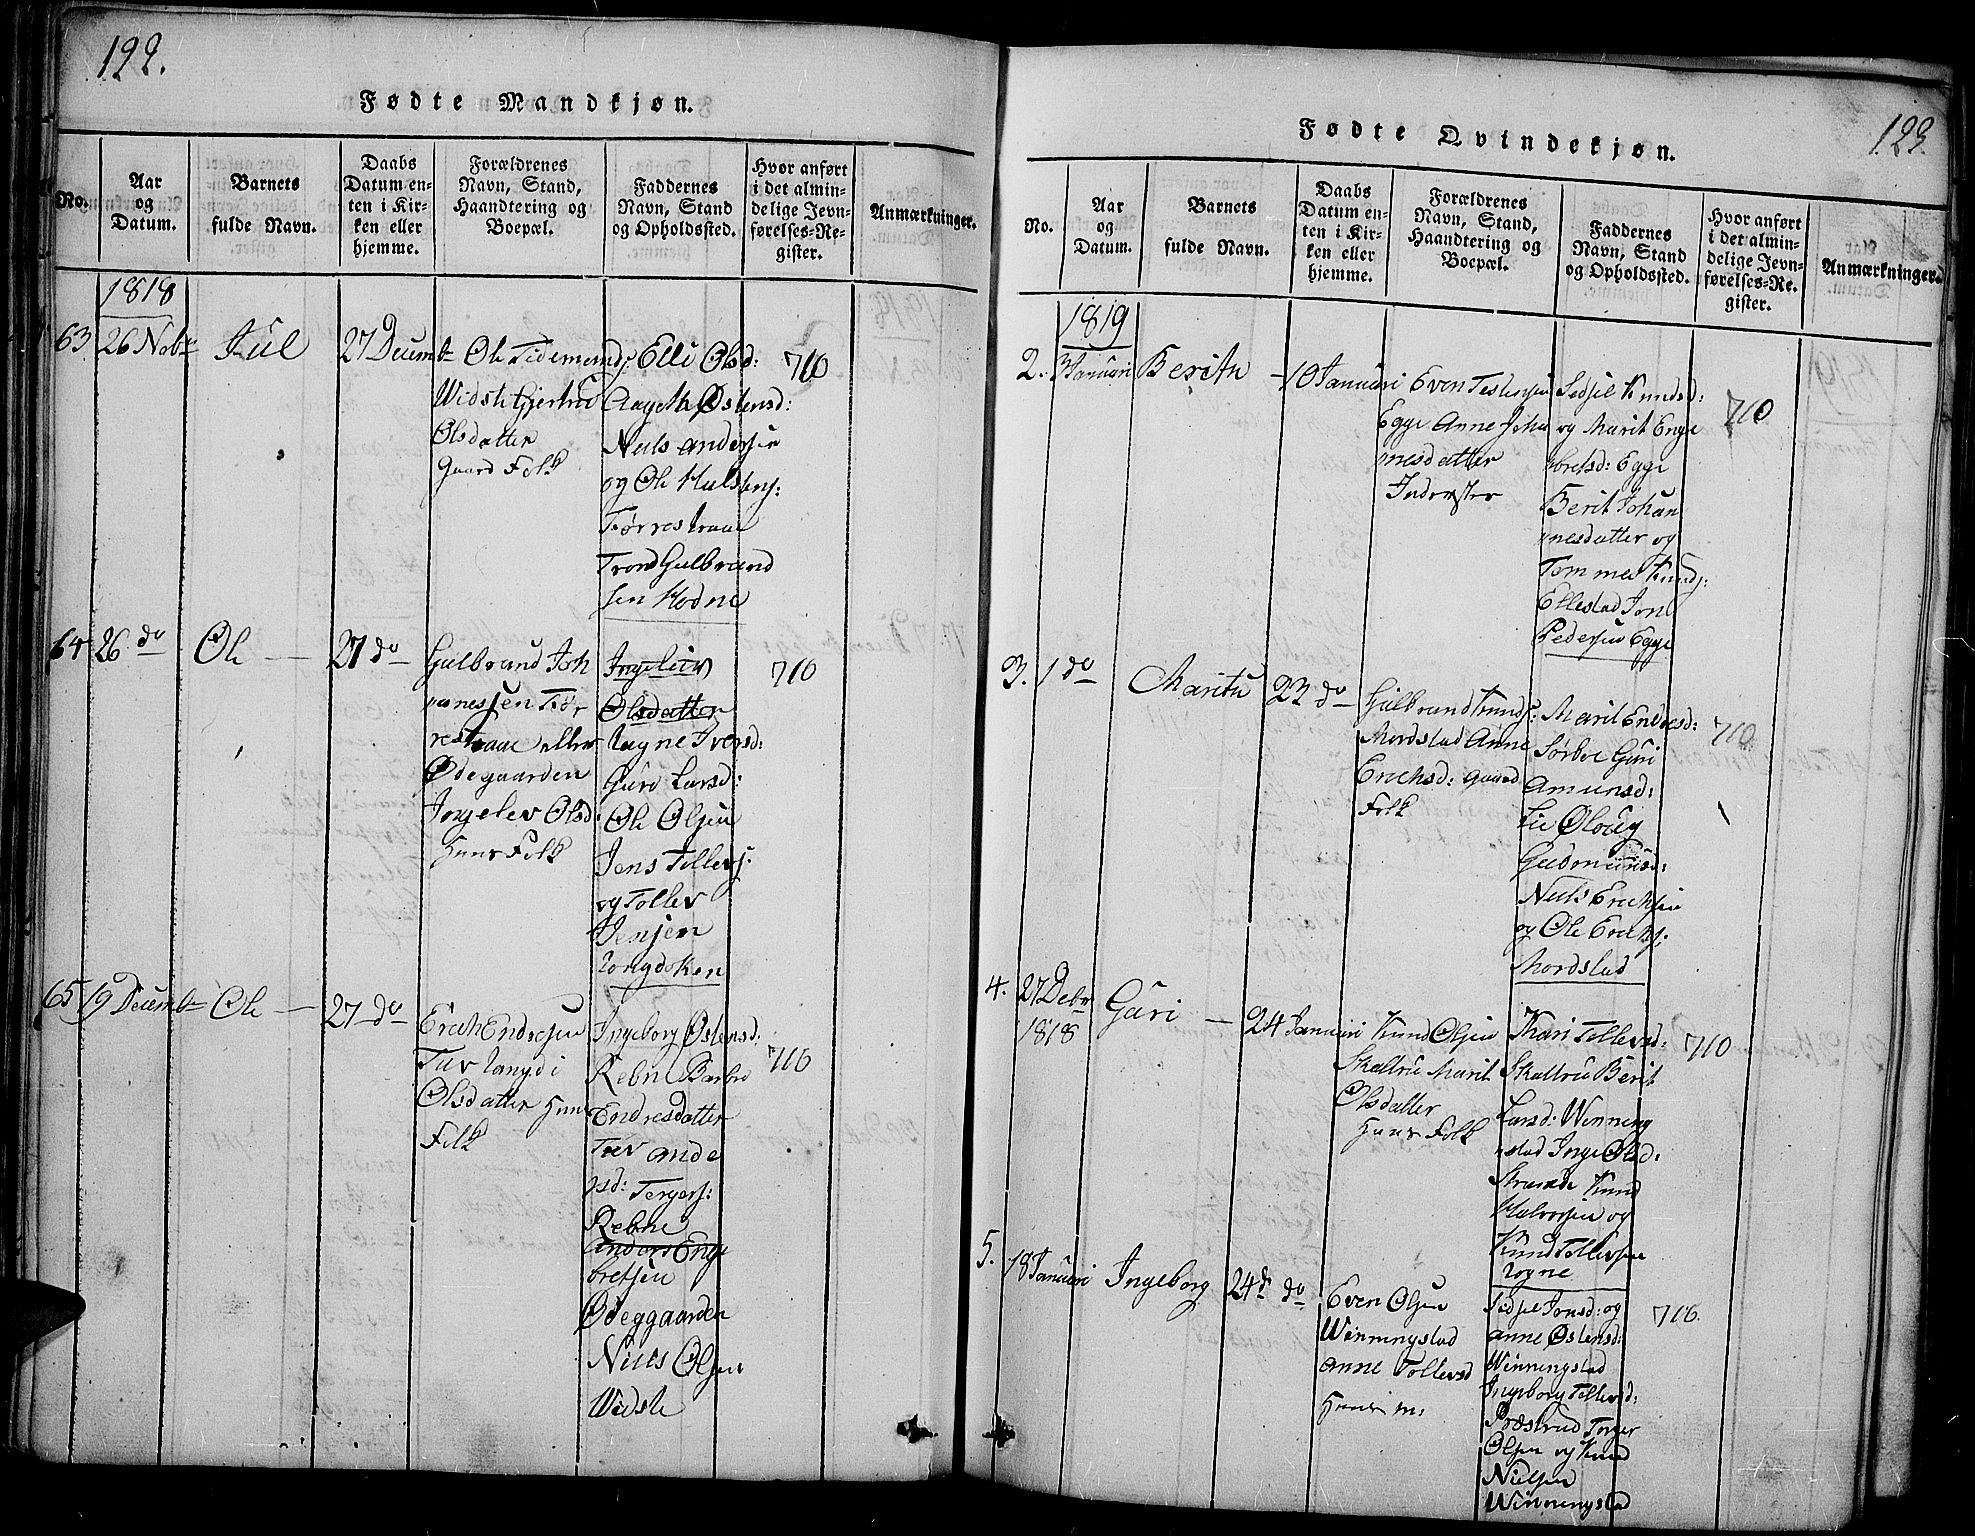 122.
Fødte Mandkjøn.
No.
Aar
og
Datum.
Barnets
fulde Navn.
Daabs
Datum en-
ten i Kir-
ken eller
hjemme.
Forældrenes
Navn, Stand,
Haandtering og
Boepæl.
Faddernes
Navn, Stand
og Opholdssted.
Hvor anført
i det almin-
delige Jevn-
førelses-Re-
gister.
Anmærkninger.
1818
63
26 Nobr
Jul
27 Decemb
Ole Tidemends:
Widste Gjertru
Olsdatter
Gaard Folk
Elli Olsd:
Aagethe Østensd:
Niels Andersen
og Ole Halstens:
Tørrestraae
Trond Gulbrand
sen Kodne
710
64
26 do
Ole
27 do
Gulbrand Joh
annessen Tør
restraae eller
Ødegaarden
Ingelev Olsd:
Huus Folk
Ingeleiv
Olsdatter
Rogne Iversd:
Guro Larsd:
Ole Olsen
Jens Tollevs:
og Tollev
Jensen
Rongdoken
710
65
19 Decemb
Ole
27 do
Erich Endresen
Tuv Rangdi
Olsdatter Huus
Folk
Ingeborg Østensd:
Rebne Barbro
Endresdatter
Tuv Ande
rsd: Tergers:
Rebne
Anders Enge
bretsen
Ødeggaarden
Niels Olsen
Widste
710
123.
Fødte Qvindekjøn.
No.
Aar
og
Datum.
Barnets
fulde Navn.
Daabs
Datum en-
ten i Kir-
ken eller
hjemme.
Forældrenes
Navn, Stand,
Haandtering og
Boepæl.
Faddernes
Navn, Stand
og Opholdssted.
Hvor anført
i det almin-
delige Jevn-
førelses-Re-
gister.
Anmærkninger.
1819
2.
3 Januari
Beritu
10 Januari
Even Testensen
Egge Anne Joha
nnesdatter
Inderster
Sidsel Knudsd:
og Marit Enge
bretsd: Egge
Berit Johan
nesdatter og
Tommes Knuds:
Ellestad Jon
Pedersen Egge
710
3.
1 do
Maritu
23 do
Gulbrand Knuds:
Mordstad Anne
Erichsd: Gaard
Folk
Marit Endresd:
Sørboe Guri
Amunsd:
Lie Oloug
Gudmunsd:
Niels Erichsen
og Ole Erichs:
Mordstad
710
4.
27 Debr
1818
Guri
24 Januari
Knud Olsen
Skattru Marit
Olsdatter
Huus Folk
Kari Tollevsd:
Skattru Berit
Larsd: Winning
stad Inge Olsd:
Strande Knud
Halvorsen og
Knud Tollevsen
Rogne
710
5.
18 Januari
Ingeborg
24de do
Even Olsen
Winningstad
Anne Tollevsd
Huus m:
Sidsel Jonsd: og
Anne Østensd:
Winningstad
Ingeborg Tollevsd:
Præstrud Torger
Olsen og Knud
Nielsen
Winningstad
710.